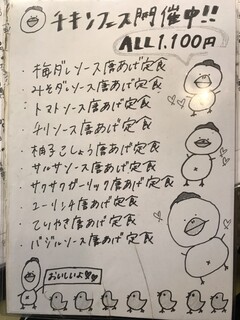 チキンフェス開催中!!
ALL 1,100円
・梅ダレソース唐あげ定食
・みそダレソース唐あげ定食
・トマトソース唐あげ定食
・チリソース唐あげ定食
・柚子こしょう唐あげ定食
・サルサソース唐あげ定食
・サクサクガーリック唐あげ定食
・ユーリンチ唐あげ定食
・てりやき唐あげ定食
・バジルソース唐あげ定食
おいしいよ